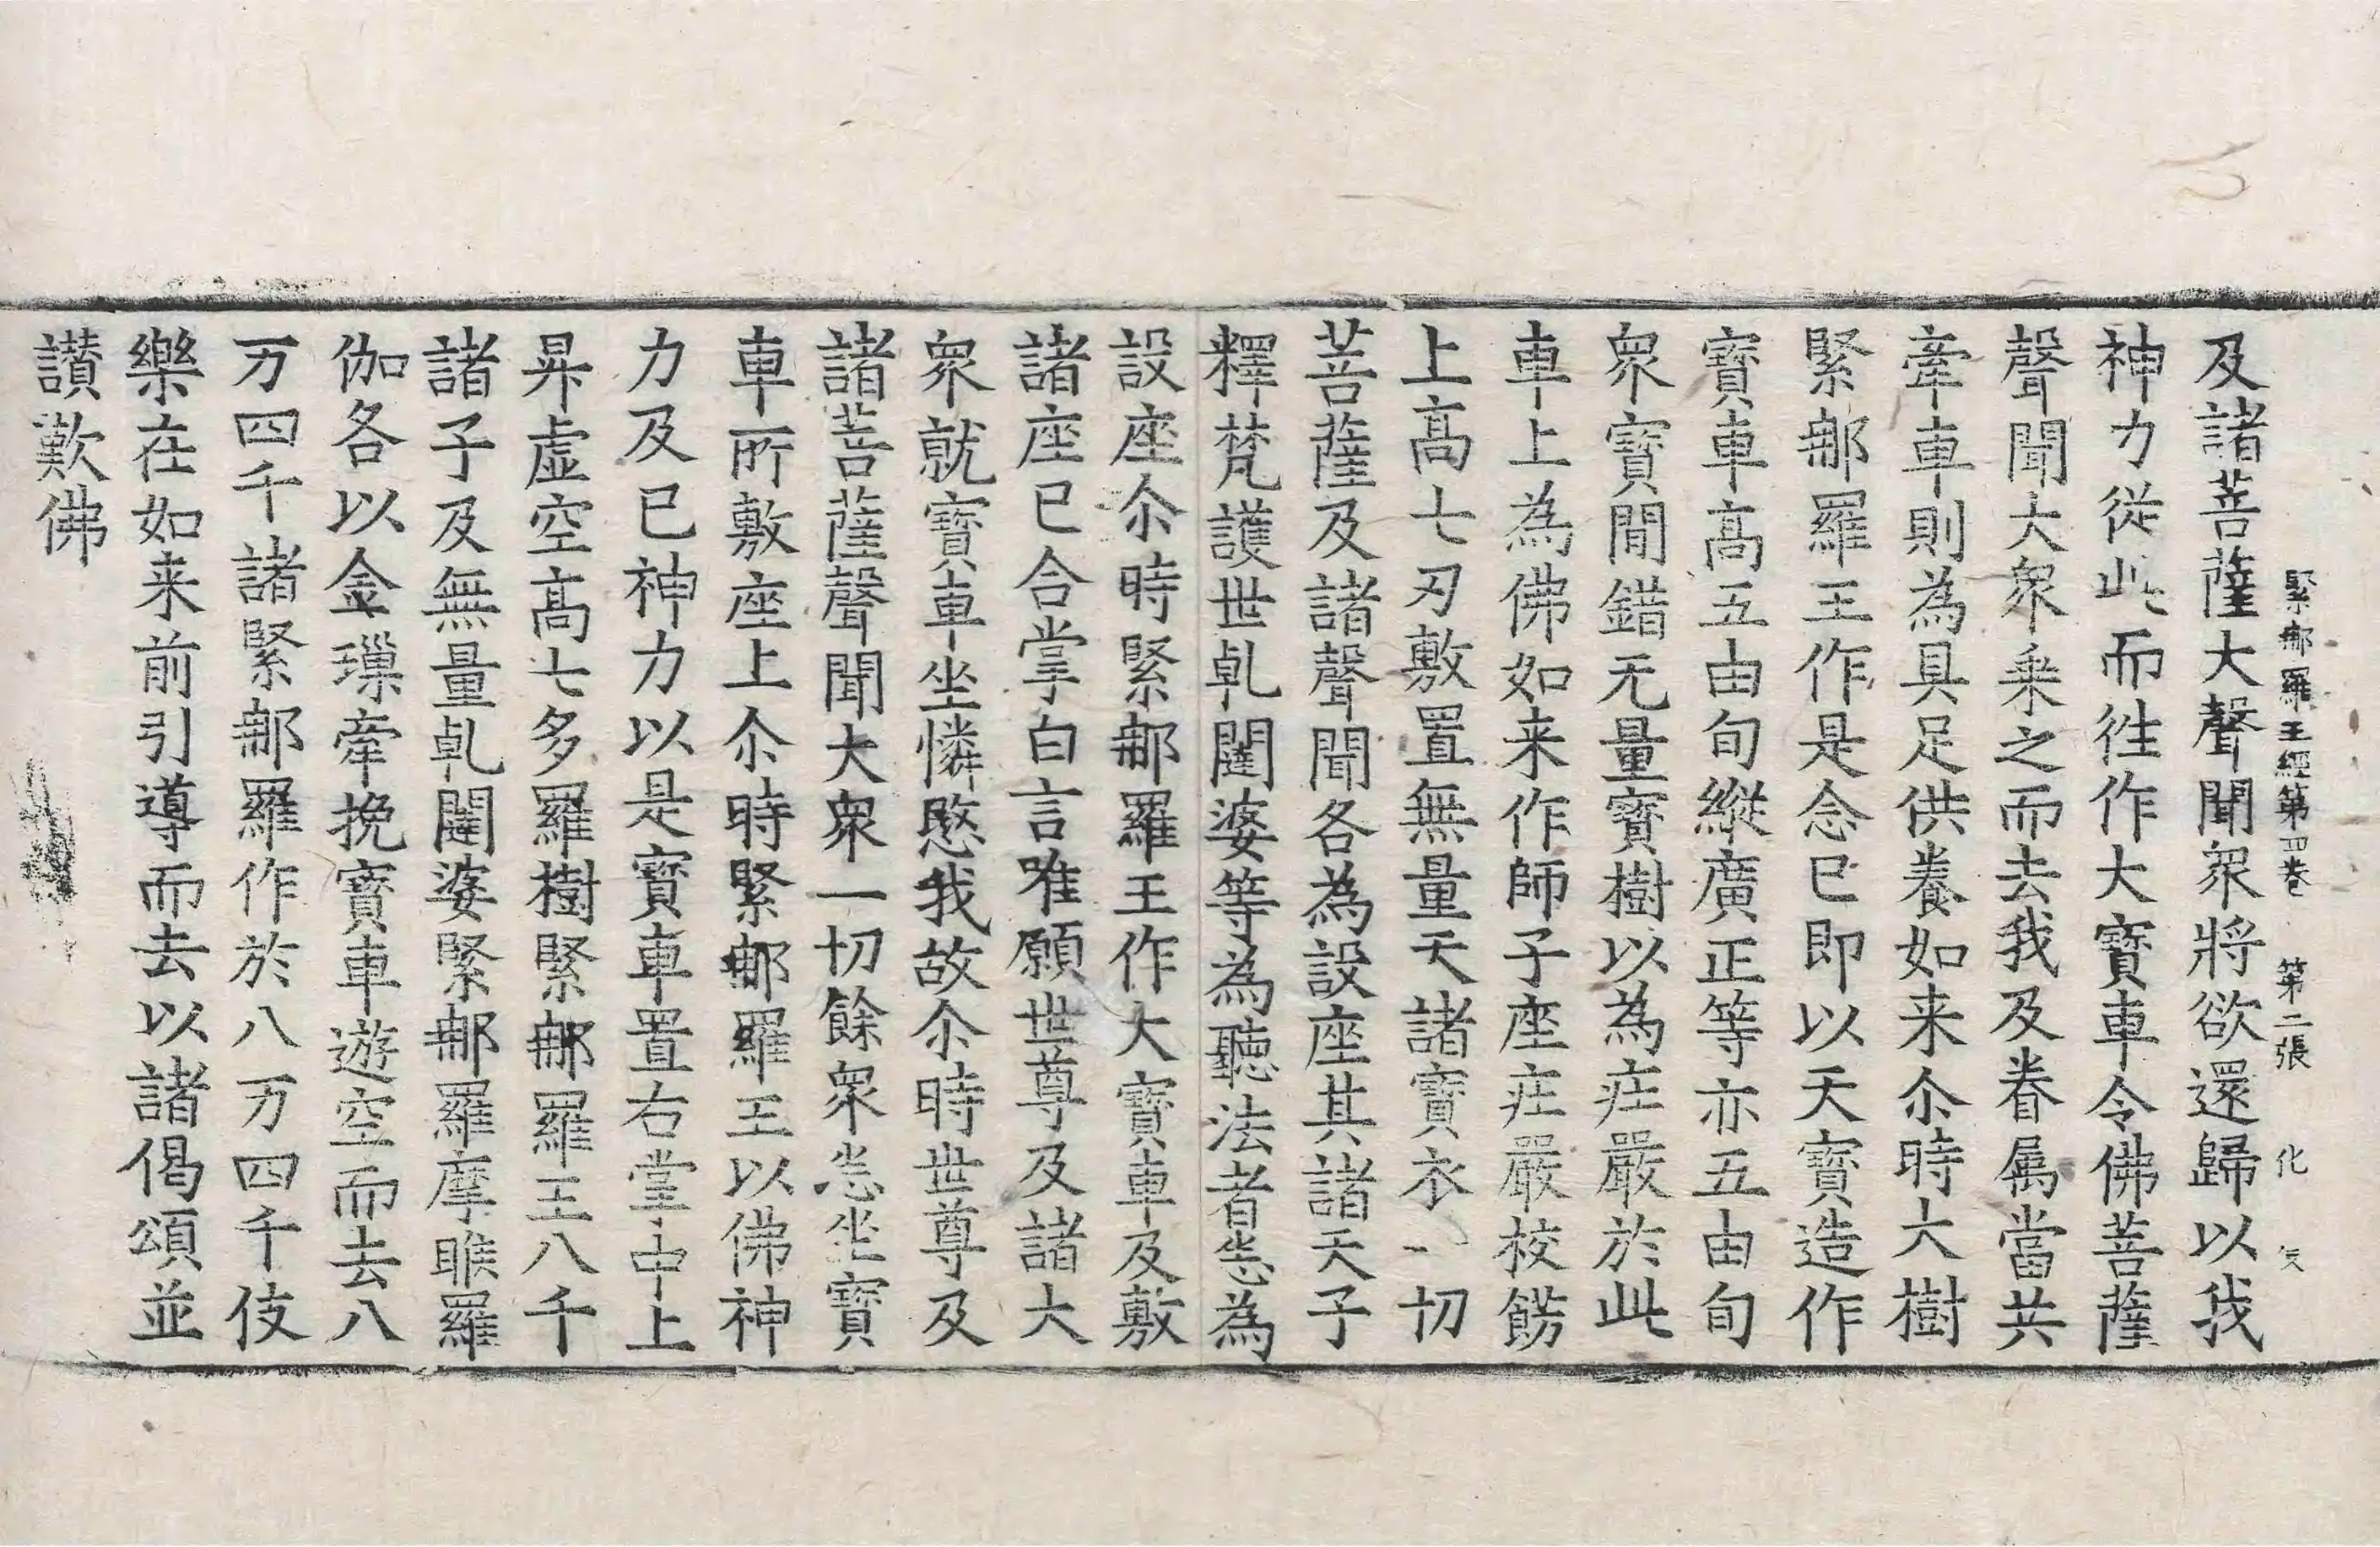 緊那羅王經第四卷 第二張 化
及諸菩薩大聲聞衆將欲還歸以我
神力從此而徃作大寳車令佛菩薩
聲聞大衆乗之而去我及眷属當共
牽車則為具足供養如来尒時大樹
緊那羅王作是念已即以天寳造作
寳車髙五由旬縱廣正等亦五由旬
衆寳間錯无量寳樹以為庄嚴於此
車上為佛如来作師子座庄嚴校餝
上髙七刃敷置無量天諸寳衣一切
菩薩及諸聲聞各為設座其諸天子
釋梵護世乹闥婆等為聽法者悉為
設座尒時緊那羅王作大寳車及敷
諸座已合掌白言唯願世尊及諸大
衆就寳車坐憐愍我故尒時世尊及
諸菩薩聲聞大衆一切餘衆悉坐寳
車所敷座上尒時緊那羅王以佛神
力及已神力以是寳車置右堂中上
昇虛空髙七多羅樹緊那羅王八千
諸子及無量乹闥婆緊那羅摩睺羅
伽各以金璅牽挽寳車遊空而去八
万四千諸緊那羅作於八万四千伎
樂在如来前引導而去以諸偈頌並
讃歎佛